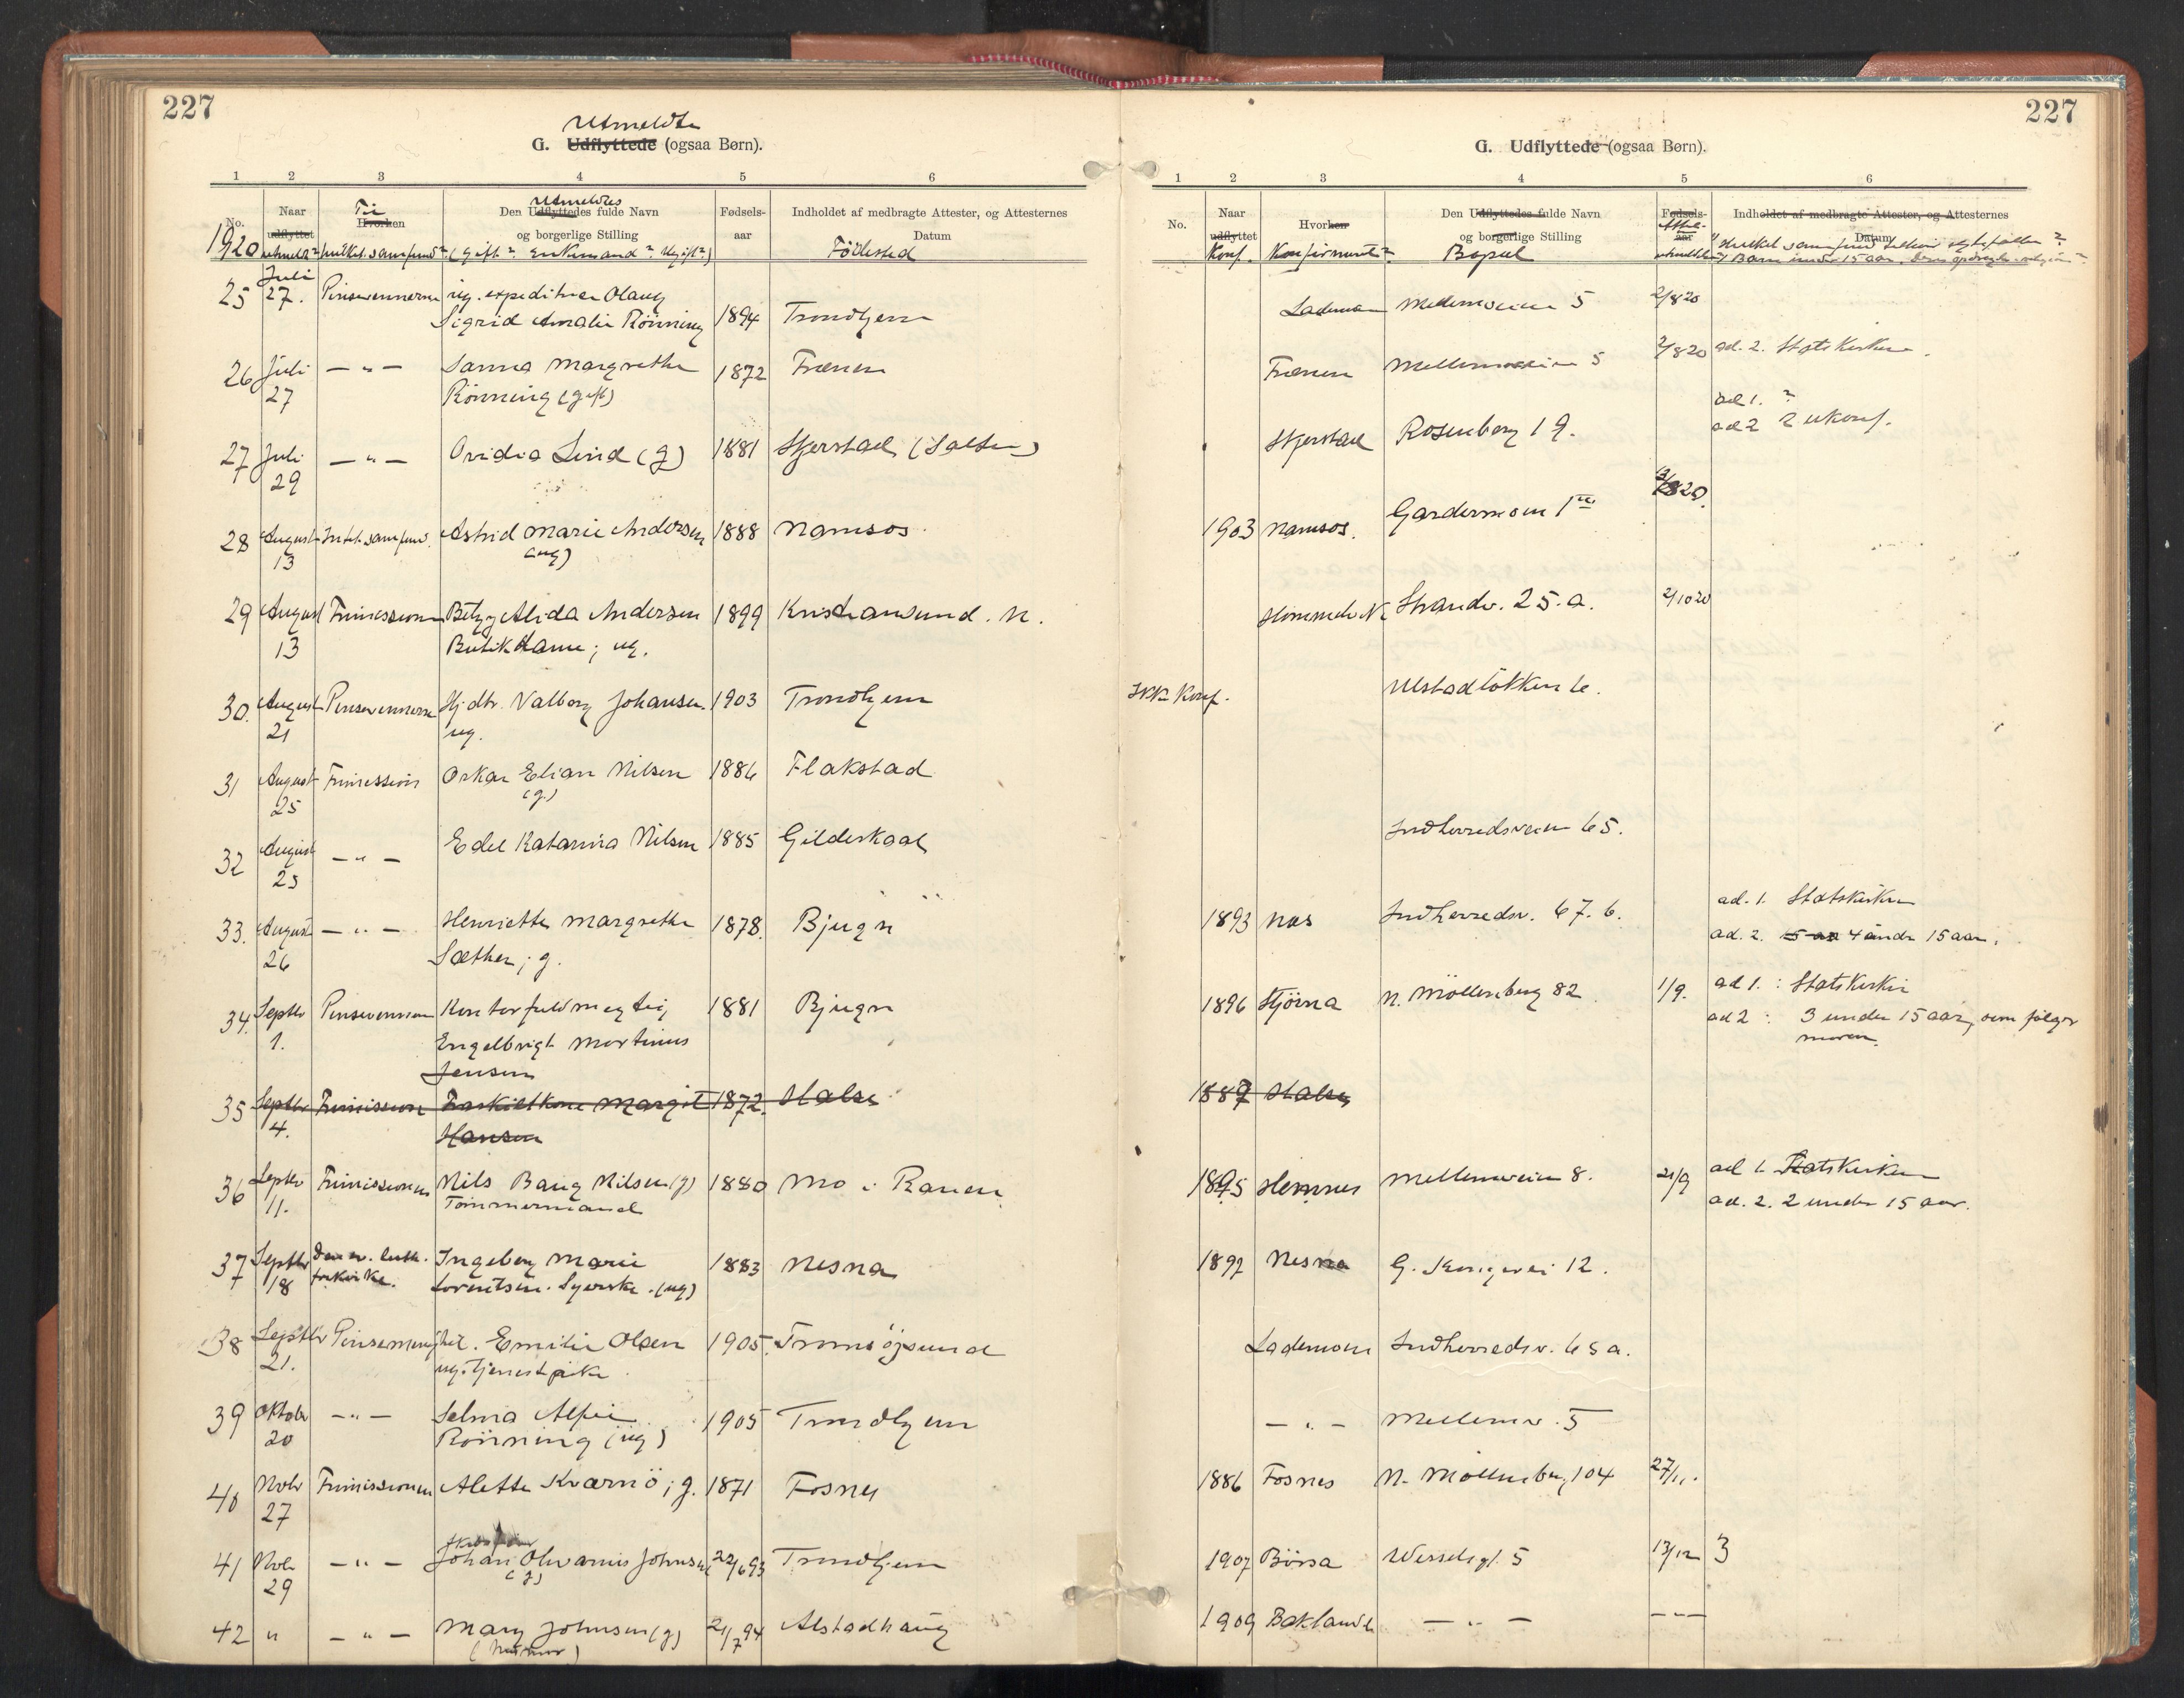 227
Utmeldte
G. Udflyttede (ogsaa Børn).
1 2 3 4 5 6
No.
Naar udflyttet utmeldt?
Til
Hvorhen hvilket samfund?
Utmeldtes
Den Udflyttedes fulde Navn
og borgerlige Stilling
(Gift? Enkemand? Ugift?)
Fødsels-
aar
Indholdet af medbragte Attester, og Attesternes
Datum
Födested
1920
25 Juli 27. Pinsevennerne ug. expeditrice Olaug
Sigrid Amalie Rönning 1894 Trondhjem
26 Juli 27 — " — Sanna Margrethe
Rönning (gift) 1872 Frænen
27 Juli 29 — " — Ovidia Lind (g) 1881 Skjerstad (Salten)
28 August 13 Intet samfund. Astrid Marie Andersen
(ug) 1888 Namsos
29 August 13 Frimissionen Betzy Alida Andersen
Butikdame; ug. 1899 Kristiansund. N.
30. August 21 Pinsevennerne Hj.dtr. Valborg Johansen
ug. 1903 Trondhjem
31 August 25 Frimission Oskar Elian Nilsen
(g.) 1886 Flakstad
32 August 25 — " — Edel Katarina Nilsen 1885 Gildeskaal
33. August 26 — " — Henriette Margrethe
Sæther; g. 1878. Bjugn
34. Septbr 1. Pinsevennen Kontorfuldmegtig
Engelbrigt Martinus
Jensen 1881 Bjugn
35 Septbr 4. Frimissionen Fraskilt kone Margit
Hansen 1872. Halse
36 Septbr 11. Frimissionen Nils Bang Nilsen (g)
Tömmermand 1880 Mo i Ranen
37 Septbr 18 Den ev. luth.
frikirke. Ingeborg Marie
Lorentsen. Syerske. (ug) 1883 Nesna
38 Septbr 21. Pinsemenighet. Emilie Olsen
ug. tjenestpike 1905. Tromsøysund
39 Oktobr 20 — " — Selma Alfie
Rönning (ug) 1905 Trondhjem
40 Novbr 27 Frimissionen Alette Kværnö; g. 1871 Fosnes
41 Novbr 29 — " — Johan Olvarius Johnsen
(g) 22/6 93 Trondhjem
42 " — " — Mary Johnsen (g)
(Husmor) 21/7 94 Alstadhaug
227
G. Udflyttede (ogsaa Børn).
1 2 3 4 5 6
No.
Naar
udflyttet
Konf.
Hvorhen
Konfirmert?
Den Udflyttedes fulde Navn
og borgerlige Stilling
Bopæl
Fødsels-
aar
Attest
utmeldt
Indholdet af medbragte Attester, og Attesternes
Datum
1) Hvilket samfund tilhører egtefællen?
2) Barn under 15 aar. Deres opdragelse religion?
Lademoen Mellemveien 5 2/8 20
Frænen Mellemveien 5 2/8 20 ad. 2. Statskirken.
Skjerstad Rosenborg 19. ad 1. ?
ad 2 2 ukonf.
1903 Namsos. Gardermoen 1 2/8 20.
Strandv. 25. a. 2/10 20
Ikke Konf. Ulstadløkken 6.
Indherredsveien 65.
1893 Nes Indherredsv. 67. b. ad. 1. Statskirken
ad. 2. 5 aa 4 under 15 aar.
1896 Stjörna N. Möllenberg 82 1/9. ad 1. : Statskirken
ad 2 : 3 under 15 aar, som følger
moren.
1887 Halse
1895 Hemnes Mellemveien 8. 21/9 ad 1. Statskirken
ad. 2. 2 under 15 aar.
1897 Nesna G. Kongevei 12.
Lademoen Indherredsv. 65 a.
— " — Mellemv. 5
1886 Fosnes N. Möllenbg. 104 27/11.
1907 Börsa Wesselsgt. 5 13/12 3
1909 Baklandet — " — — " —